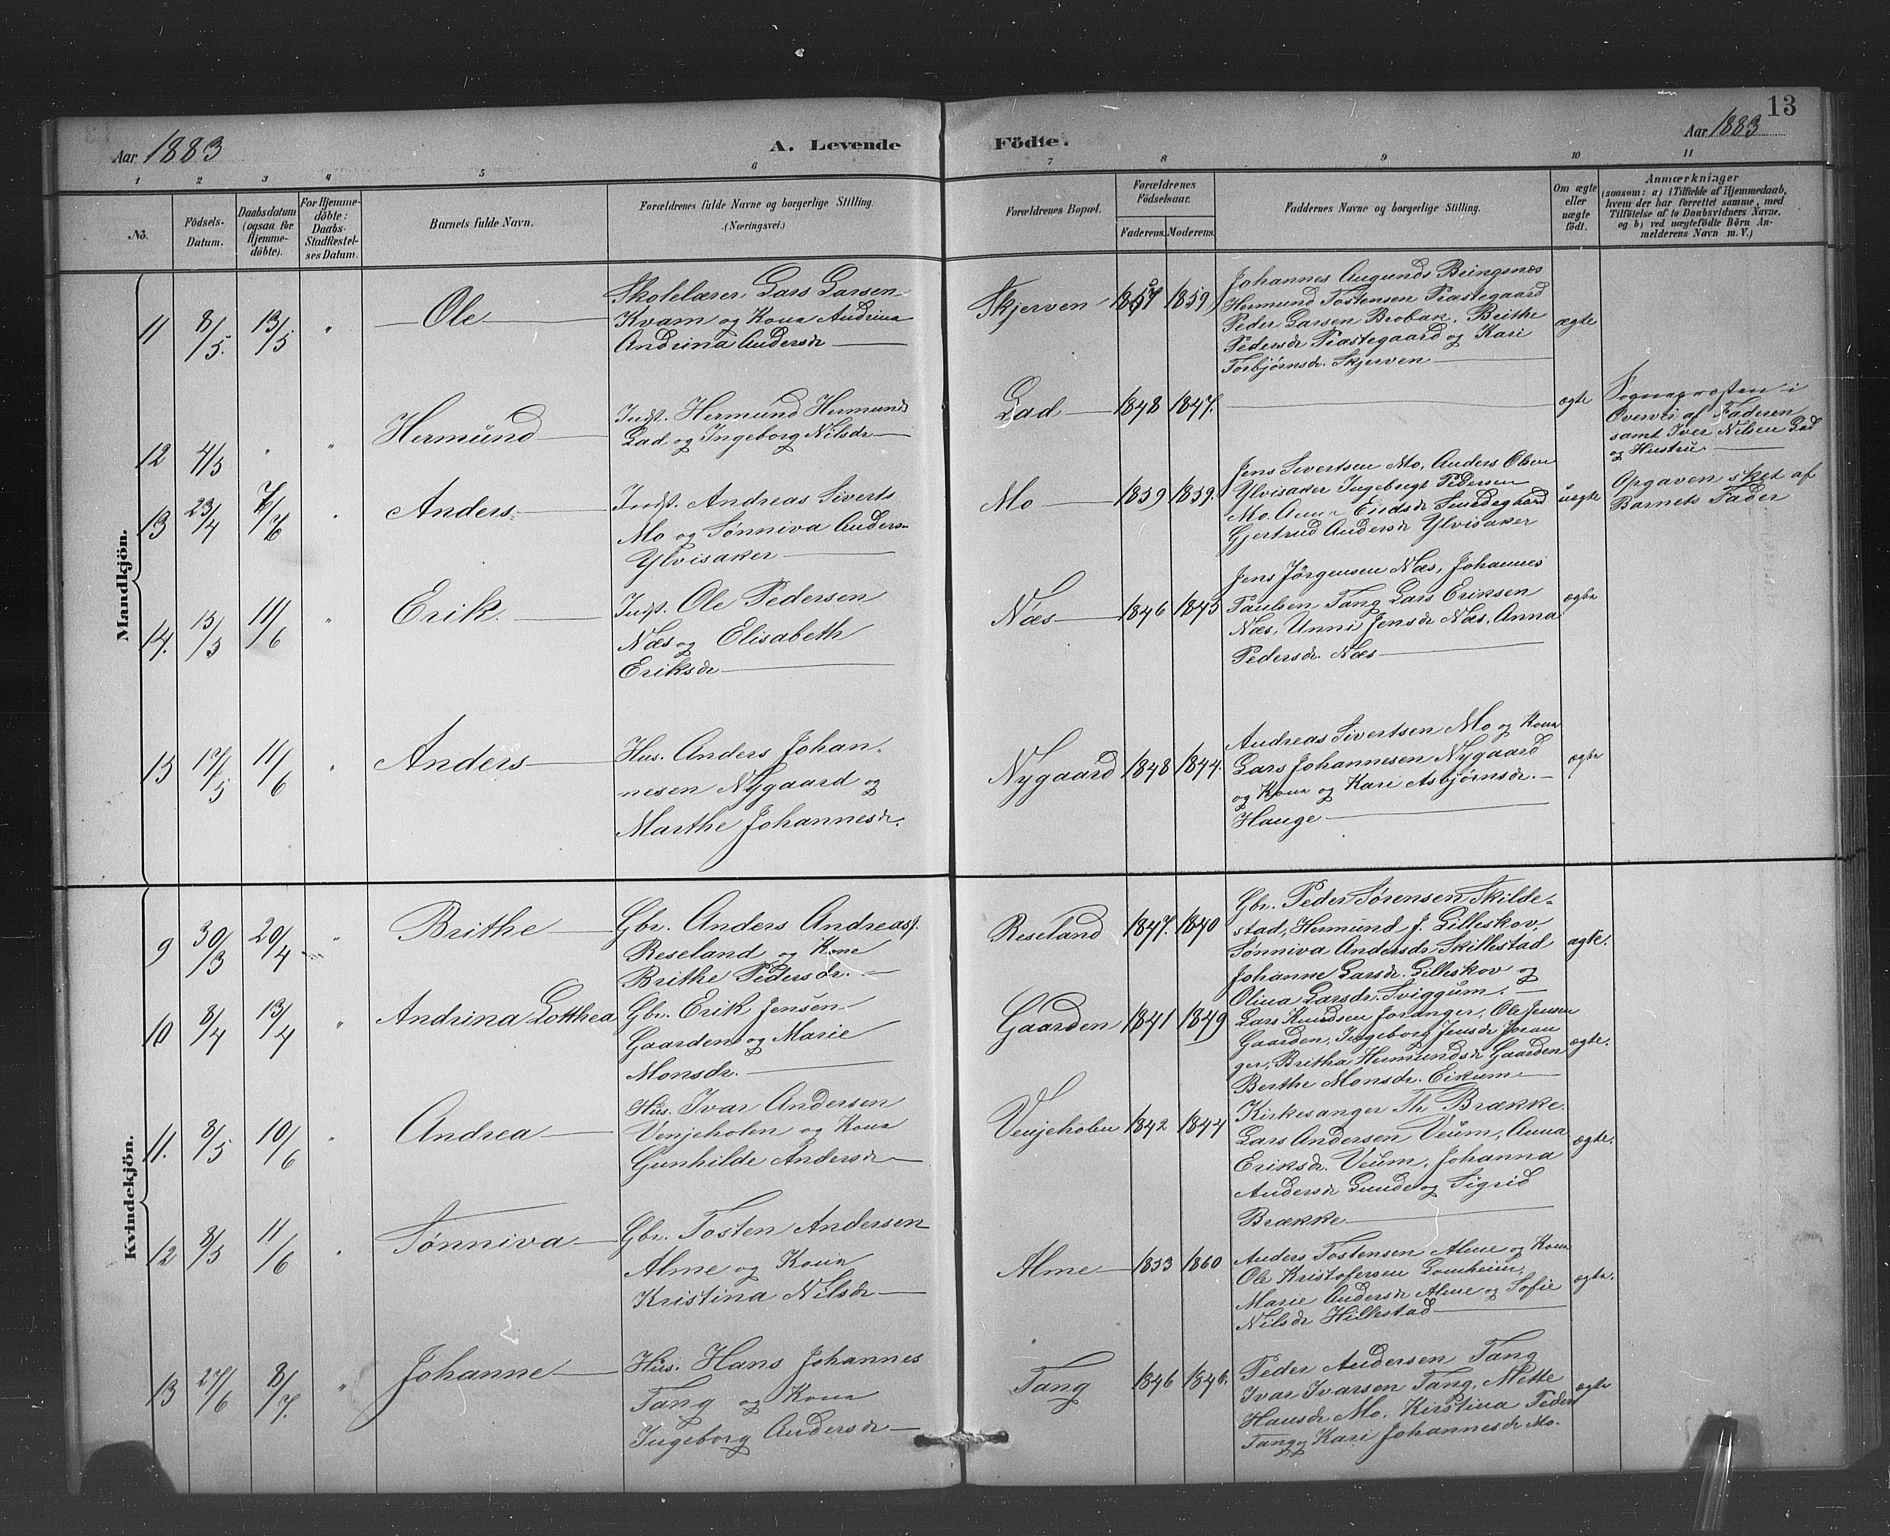 13
Aar 1883 A. Levende Födte. Aar 1883
1 2 3 4 5 6 7 8 9 10 11
No.
Födsels-
Datum.
Daabsdatum
(ogsaa for
Hjemme-
döbte).
For Hjemme-
döbte:
Daabs-
Stadfæstel-
ses Datum.
Barnets fulde Navn.
Forældrenes fulde Navne og borgerlige Stilling.
(Næringsvei.)
Forældrenes Bopæl.
Forældrenes
Födselsaar.
Faderens. Moderens.
Faddernes Navne og borgerlige Stilling.
Om ægte
eller
uægte
födt.
Anmærkninger
(saasom: a) i Tilfælde af Hjemmedaab,
hvem der har forrettet samme, med
Tilföielse af to Daabsvidners Navne.
og b) ved uægtefödte Börn An-
melderens Navn m. V.)
Mandkjön.
11 8/5. 13/5 " Ole
Skolelærer, Lars Larsen
Kvam og Kona Andrina
Andrina Andersdr
Skjerven 1857 1859
Johannes Augunds Bringsnæs
Hermund Tostensen Præstegaard
Peder Larsen Brobak, Brithe
Pedersdr Præstegaard og Kari
Torbjørnsdr. Skjerven
ægte
12 4/5 " " Hermund
Indst. Hermund Hermunds
Lad og Ingeborg Nilsdr
Lad 1848 1847.
ægte
Sognepræsten i
Overvær af Faderen
samt Iver Nilsen Lad
og Hustru
13 23/4 7/6 " Anders
Indst. Andreas Siverts
Mo og Sønniva Anders
Ylvisaker
Mo 1859 1859.
Jens Sivertsen Mo, Anders Olsen
Ylvisaker Ingebrigt Pedersen
Mo. Anna
Gjertrud Andersdr Ylvisaker
uægte
Opgaven sket af
Barnets Fader
14. 15/5 11/6 " Erik.
Indst. Ole Pedersen
Næs og Elisabeth
Eriksdr
Næs 1846 1845
Jens Jørgensen Næs, Johannes
Paulsen Tang Lars Eriksen
Næs, Unni Jensdr Næs, Anna
Pedersdr. Næs
ægte
15 17/5 11/6 " Anders
Hus. Anders Johan-
nesen Nygaard og
Marthe Johannesdr.
Nygaard 1848 1844.
Andreas Sivertsen Mo og Kona
Lars Johannesen Nygaard
og Kona og Kari Asbjørnsdr.
Hauge
ægte
Kvindekjön.
9 30/3 20/4 " Brithe
Gbr. Anders Andreas.
Reseland og Kone
Brithe Pedersdr.
Reseland 1847. 1840
Gbr. Peder Sørensen Skilde-
stad, Hermund J. Lilleskov,
Sønniva Andersdr Skillestad
Johanne Larsdr. Lilleskov og
Olina Larsdr. Sviggum.
ægte.
10 8/4 13/4 " Andrina Lotthea
Gbr. Erik Jensen
Gaarden og Marie
Monsdr.
Gaarden 1841 1849
Lars Knudsen Joranger, Ole Jensen
Gaarden, Ingeborg Jensdr Joran
ger, Britha Hermundsdr Gaarden
Berthe Monsdr. Eikum
ægte.
11. 8/5 10/6 " Andrea
Hus. Ivar Andersen
Venjeholen og Kona
Gunhilde Andersdr
Venjeholen 1842 1844
Kirkesanger Th. Brække.
Lars Andersen Veum, Anna
Eriksdr. Veum, Johanna
Andersdr Lunde og Sigrid
Brække
ægte.
12 8/5 11/6 " Sønniva
Gbr. Tosten Andersen
Alme og Kona
Kristina Nilsdr
Alme 1853 1860
Anders Tostensen Alme og Kona
Ole Kristofersen Lomheim,
Marie Andersdr Alme og Sofie
Nilsdr Hillestad
ægte.
13 27/6 8/7. " Johanne
Hus. Hans Johannes
Tang og Kona
Ingeborg Andersdr
Tang 1846 1846.
Peder Andersen Tang
Ivar Ivarsen Tang, Nette
Hansdr Mo, Kirstina Peders
Tang og Kari Johannesdr Mo.
ægte